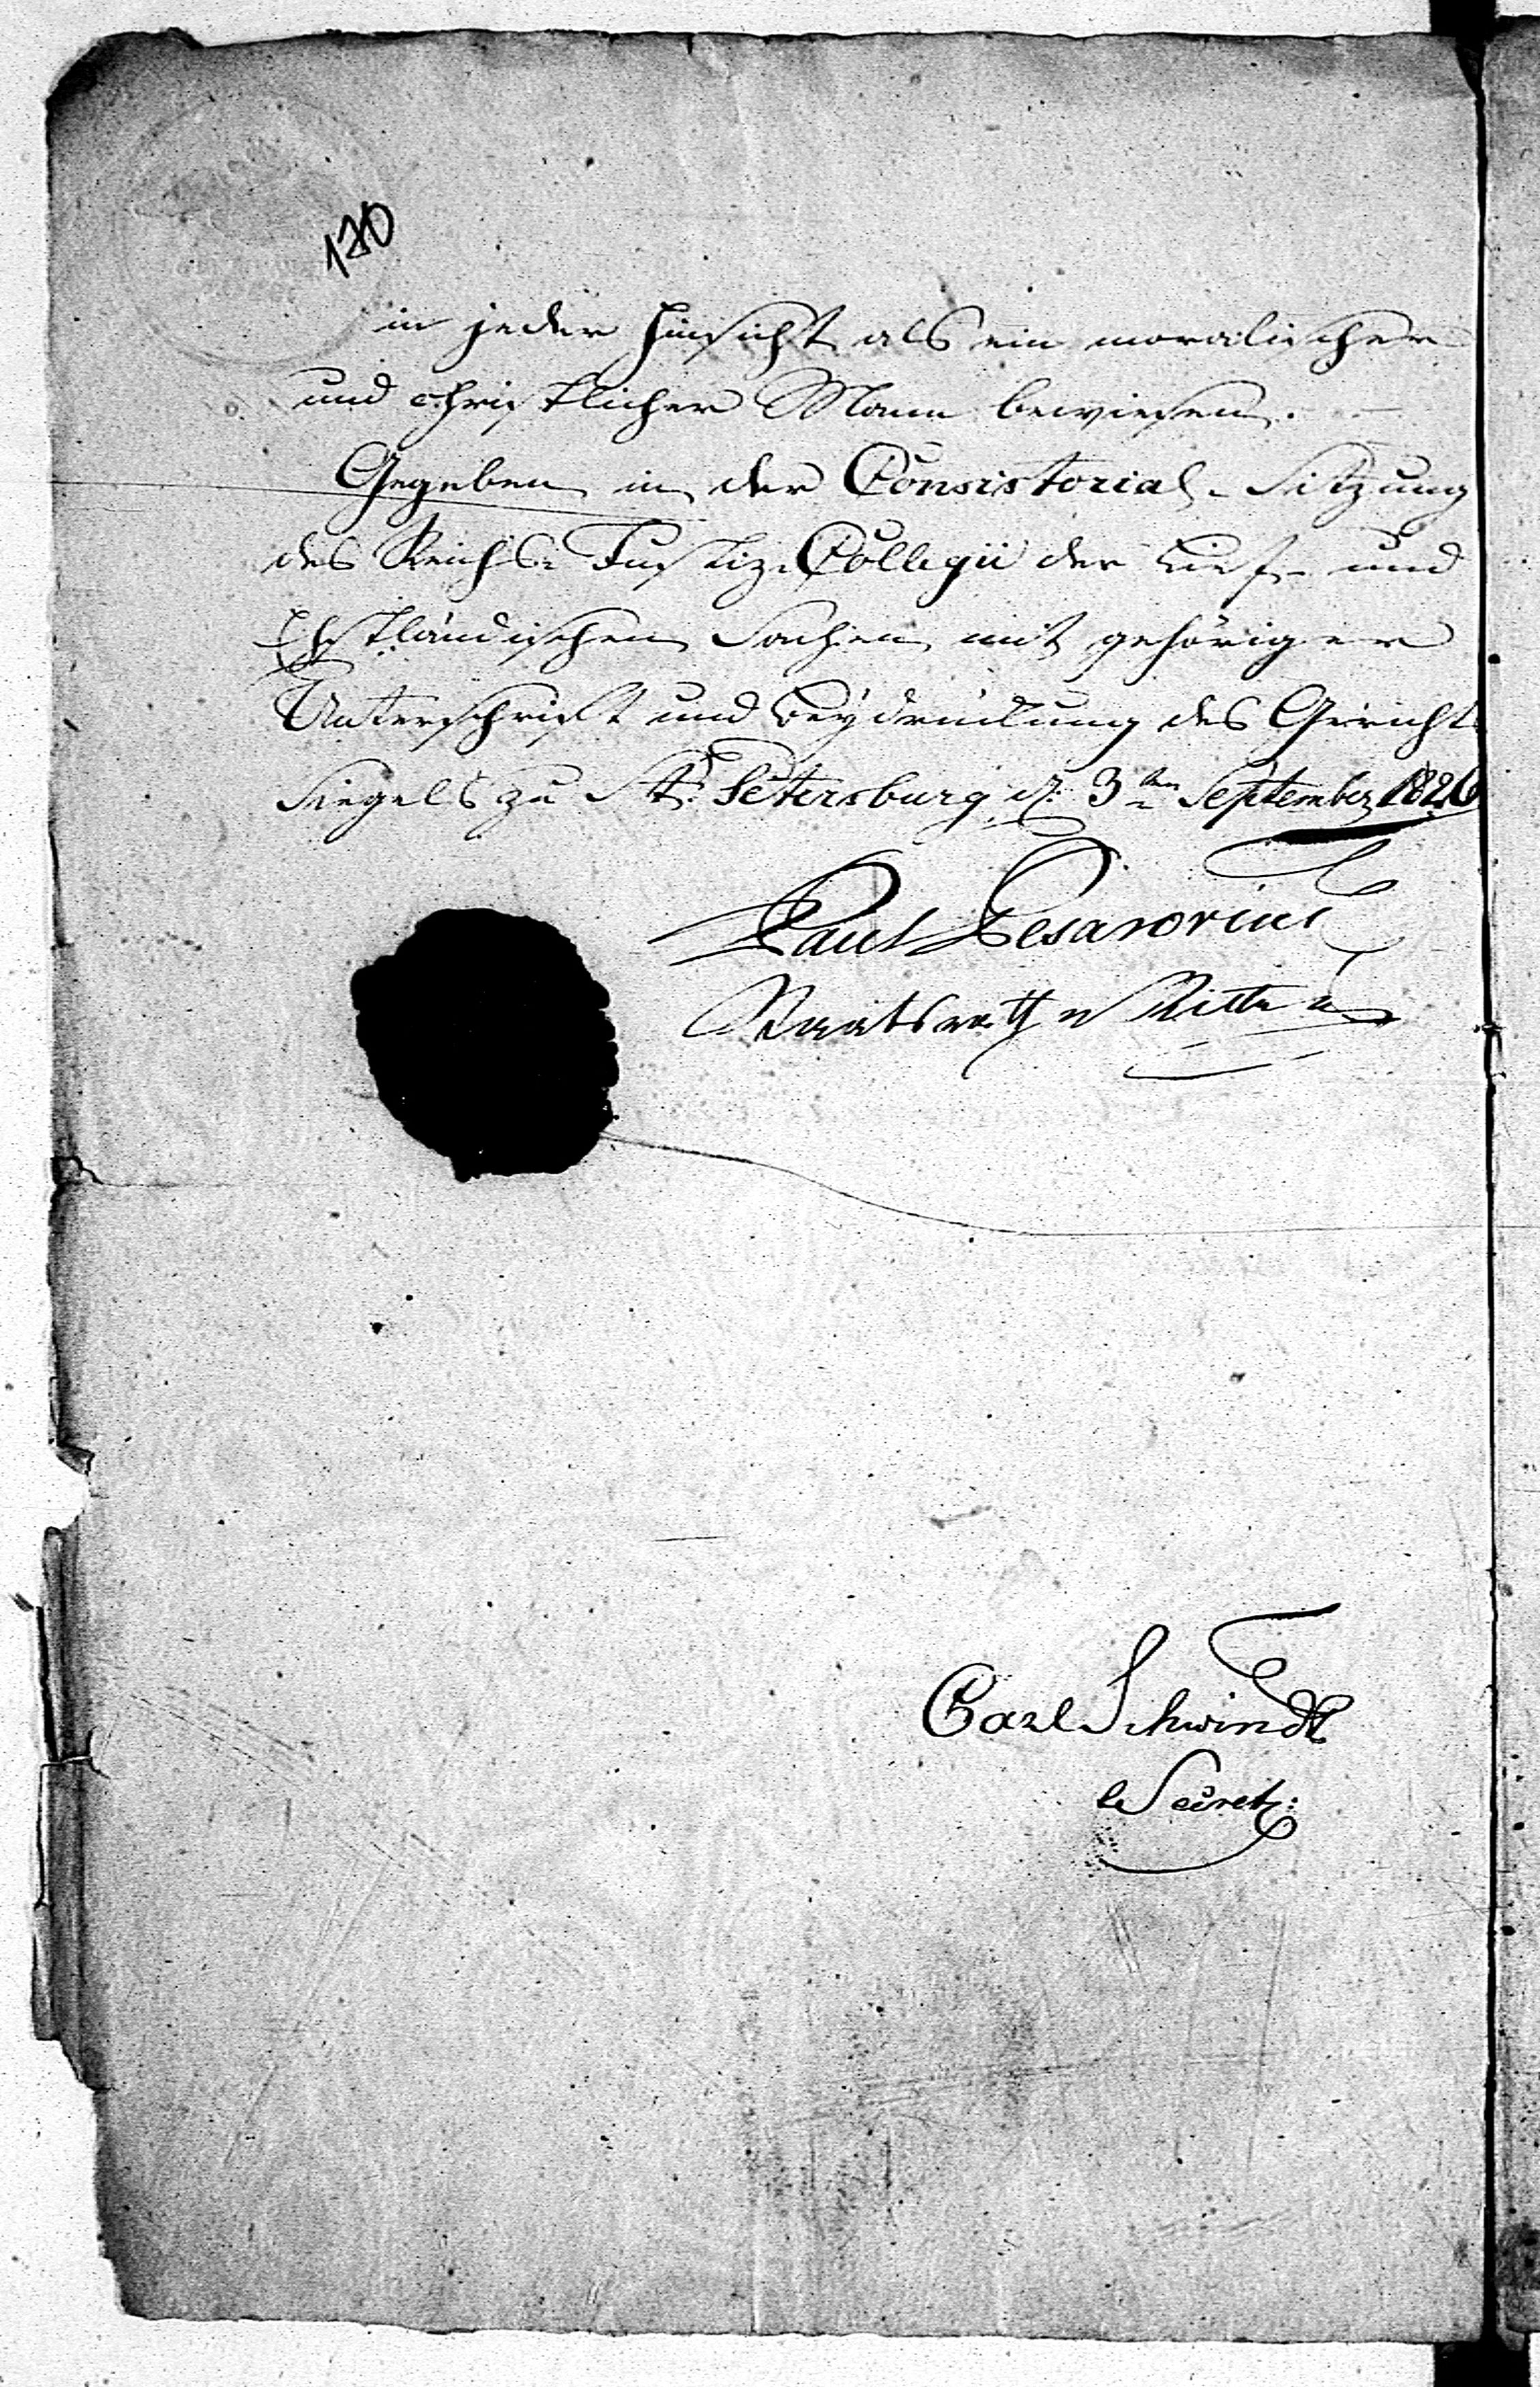 170
in jeder Hinsicht als ein moralischer
und christlicher Mann bewiesen.
Gegeben in der Consistorial-Sitzung
des Reichs-Justiz-Collegii der Lief- und
Ehstländischen Sachen mit gehöriger
Unterschrift und Beydrückung des Gerichts
Siegels zu St. Petersburg d. 3ten September 1826
Paul Pesarovius
Staatsrath u Ritter
Carl Schwindt
Secret: